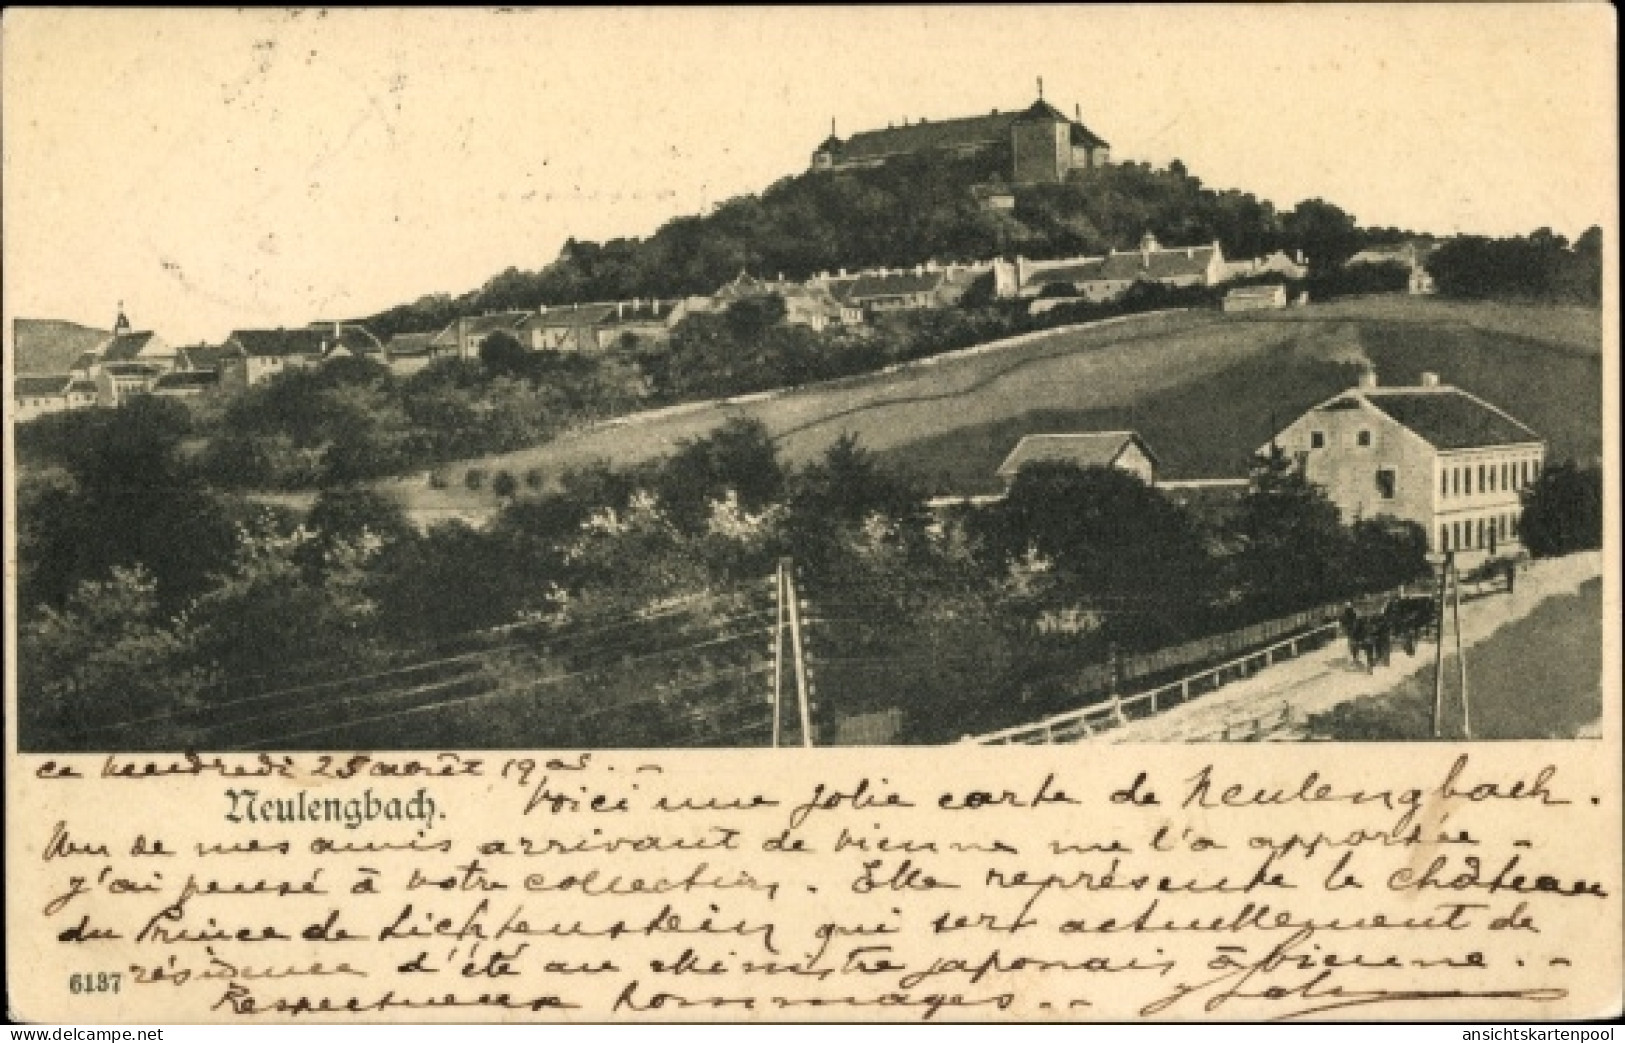 ce vendredi 25 août 1905. -
Neulengbach.
Voici une jolie carte de Neulengbach.
Un de mes amis arrivant de vienne me l'a apportée -
j'ai pensé à votre collection. Elle représente le château
du Prince de Lichtenstein qui sert actuellement de
résidence d'été au Ministre japonais à Vienne. -
6137
Respectueux hommages. -
www.delcampe.net
ansichtskartenpool